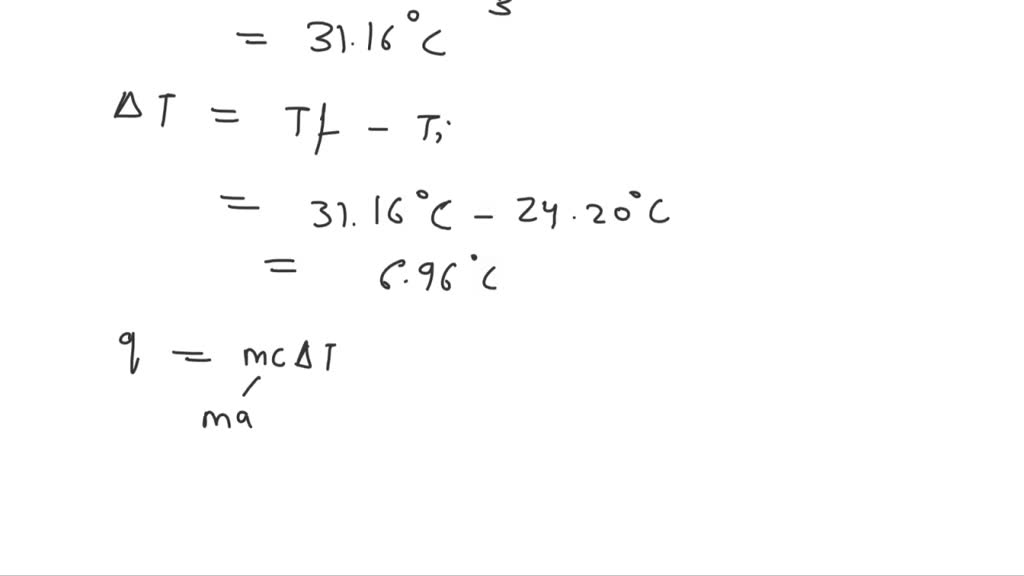 3
= 31.16°C
ΔT = Tf - Ti
= 31.16°C - 24.20°C
= 6.96°C
q = mcΔT
ma